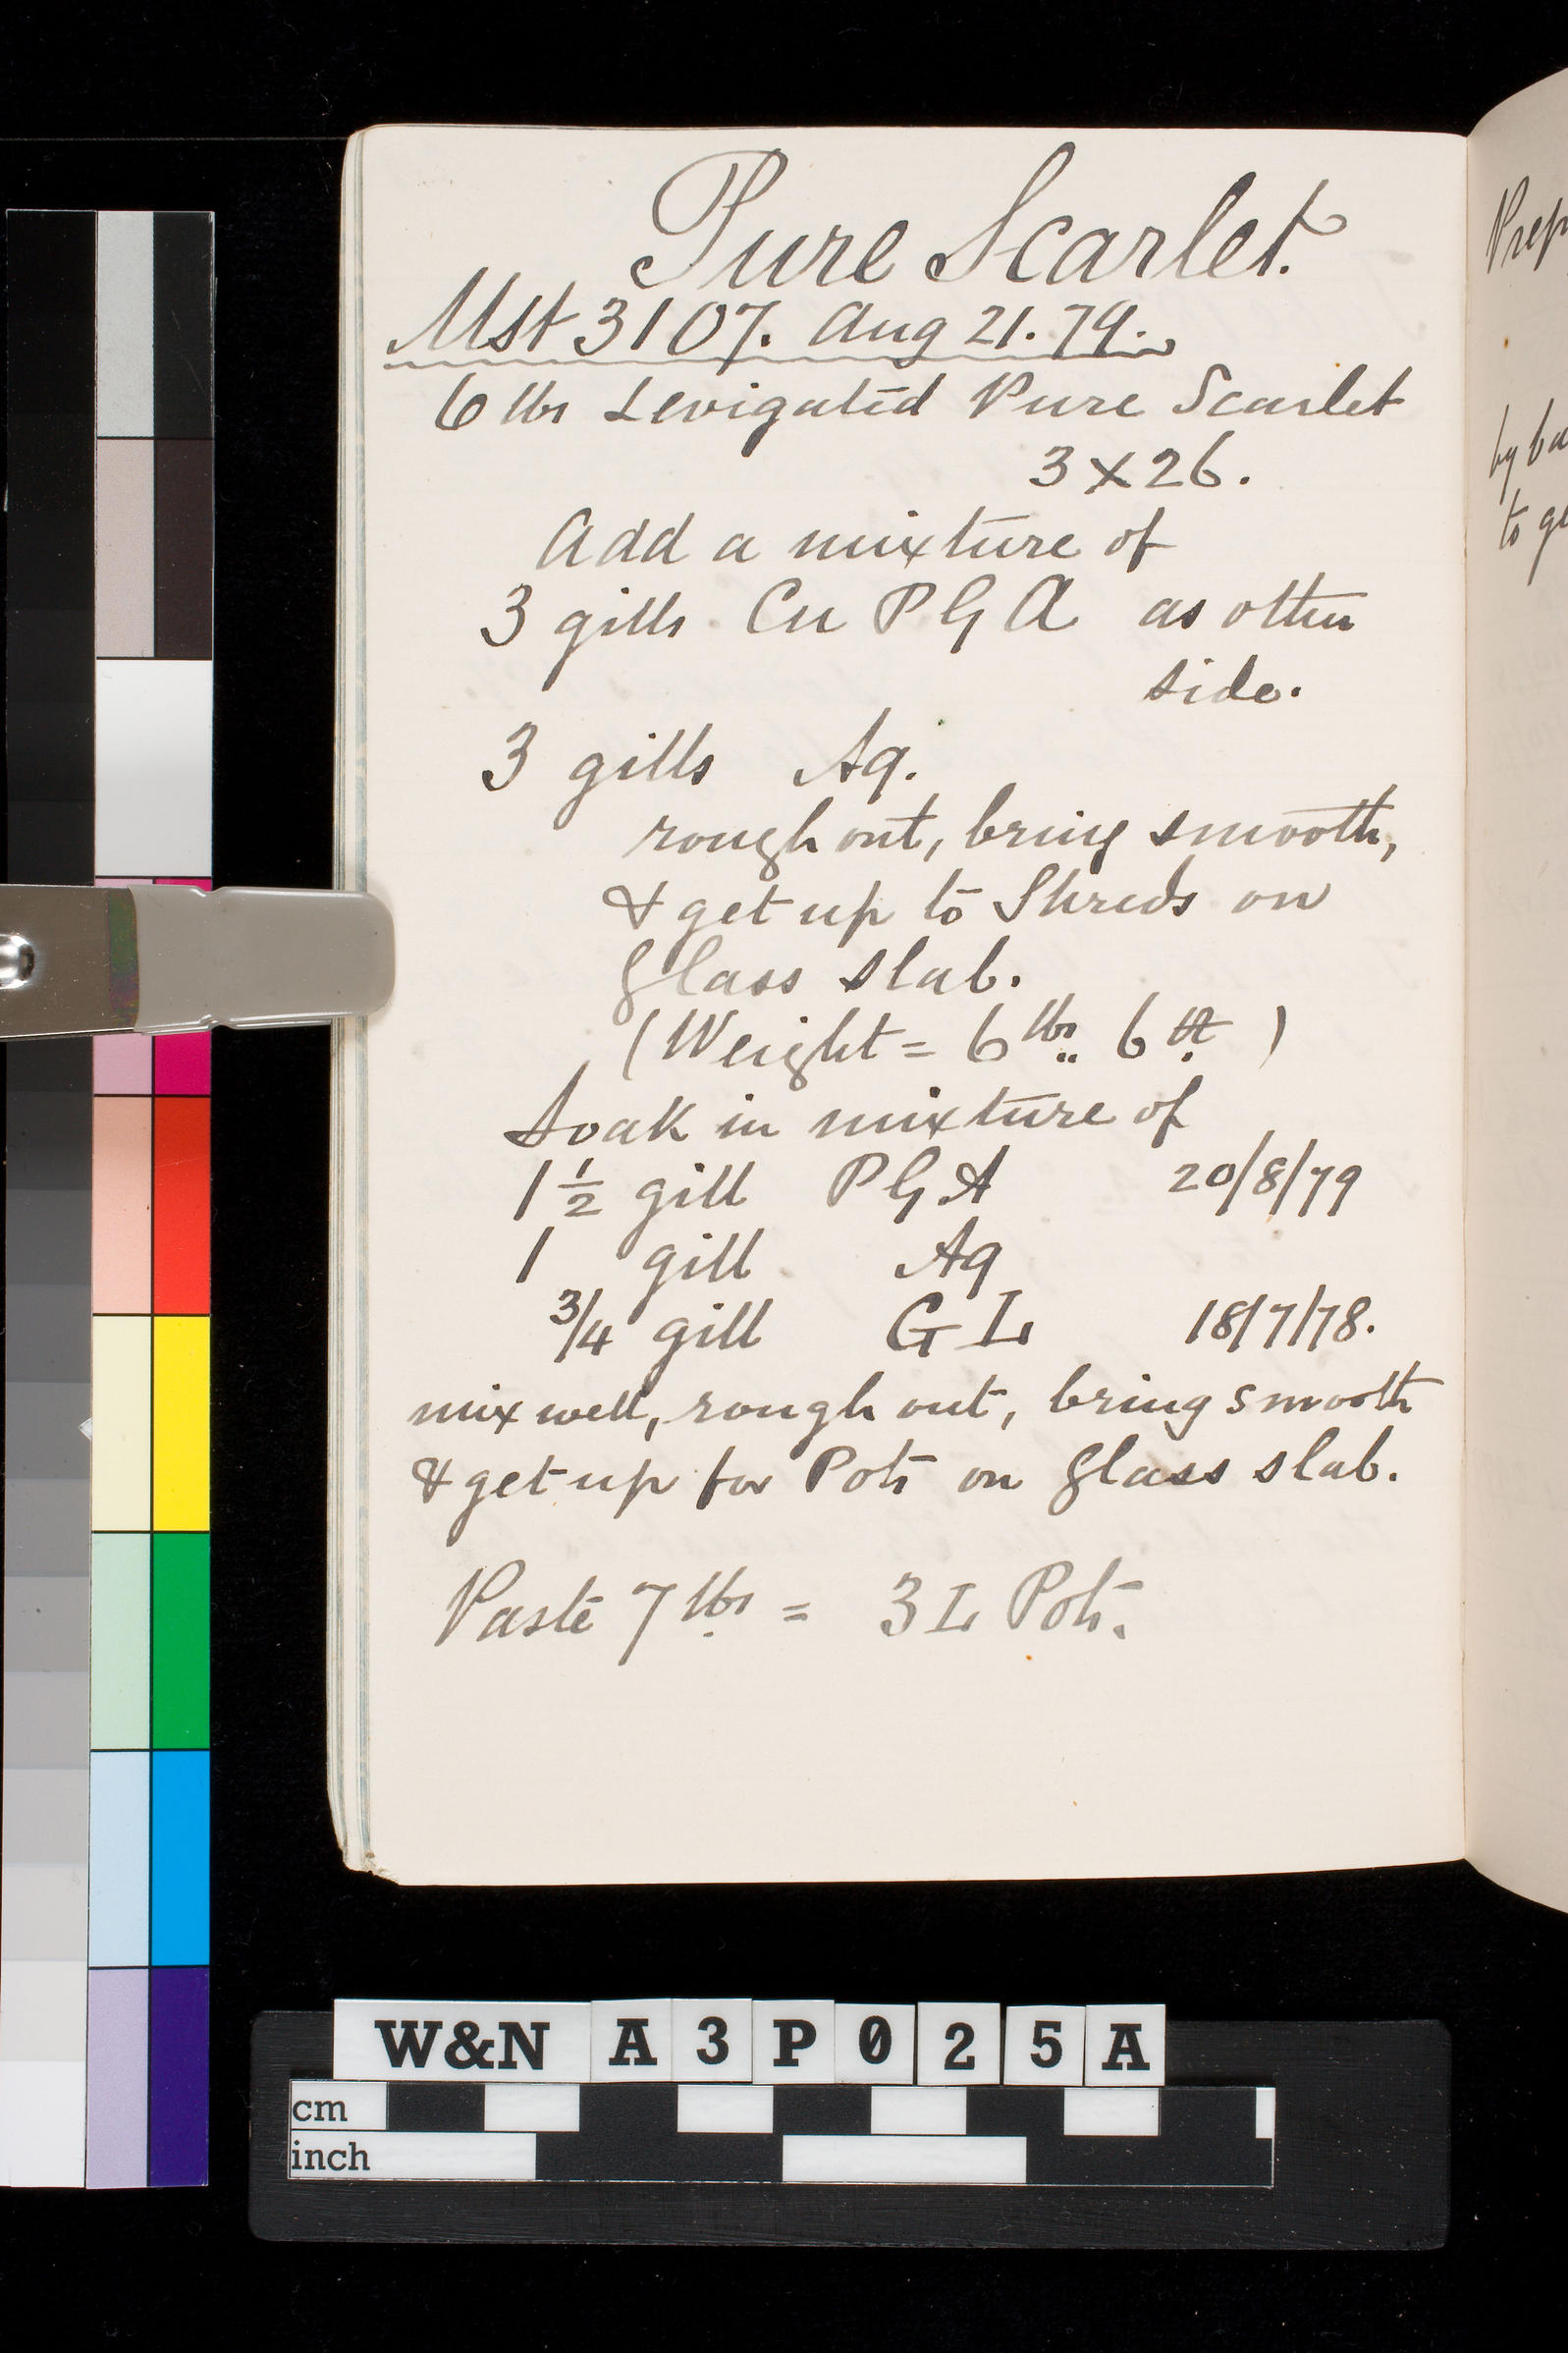 Pure Scarlet.
Mst 3107. Aug 21. 79.
6 lbs Levigated Pure Scarlet
3 x 26.
Add a mixture of
3 gills Cu P G A as otten
side.
3 gills Aq.
rough out, bring smooth,
& get up to Shreds on
glass slab.
(Weight = 6 lbs 6 )
Soak in mixture of
1 1/2 gill P G A 20/8/79
1 gill Aq
3/4 gill G L 18/7/78.
mix well, rough out, bring smooth
& get up for Pots on glass slab.
Paste 7 lbs = 3 L Pots.
Prep
by ba
to ge
W&N A3P025A
cm
inch